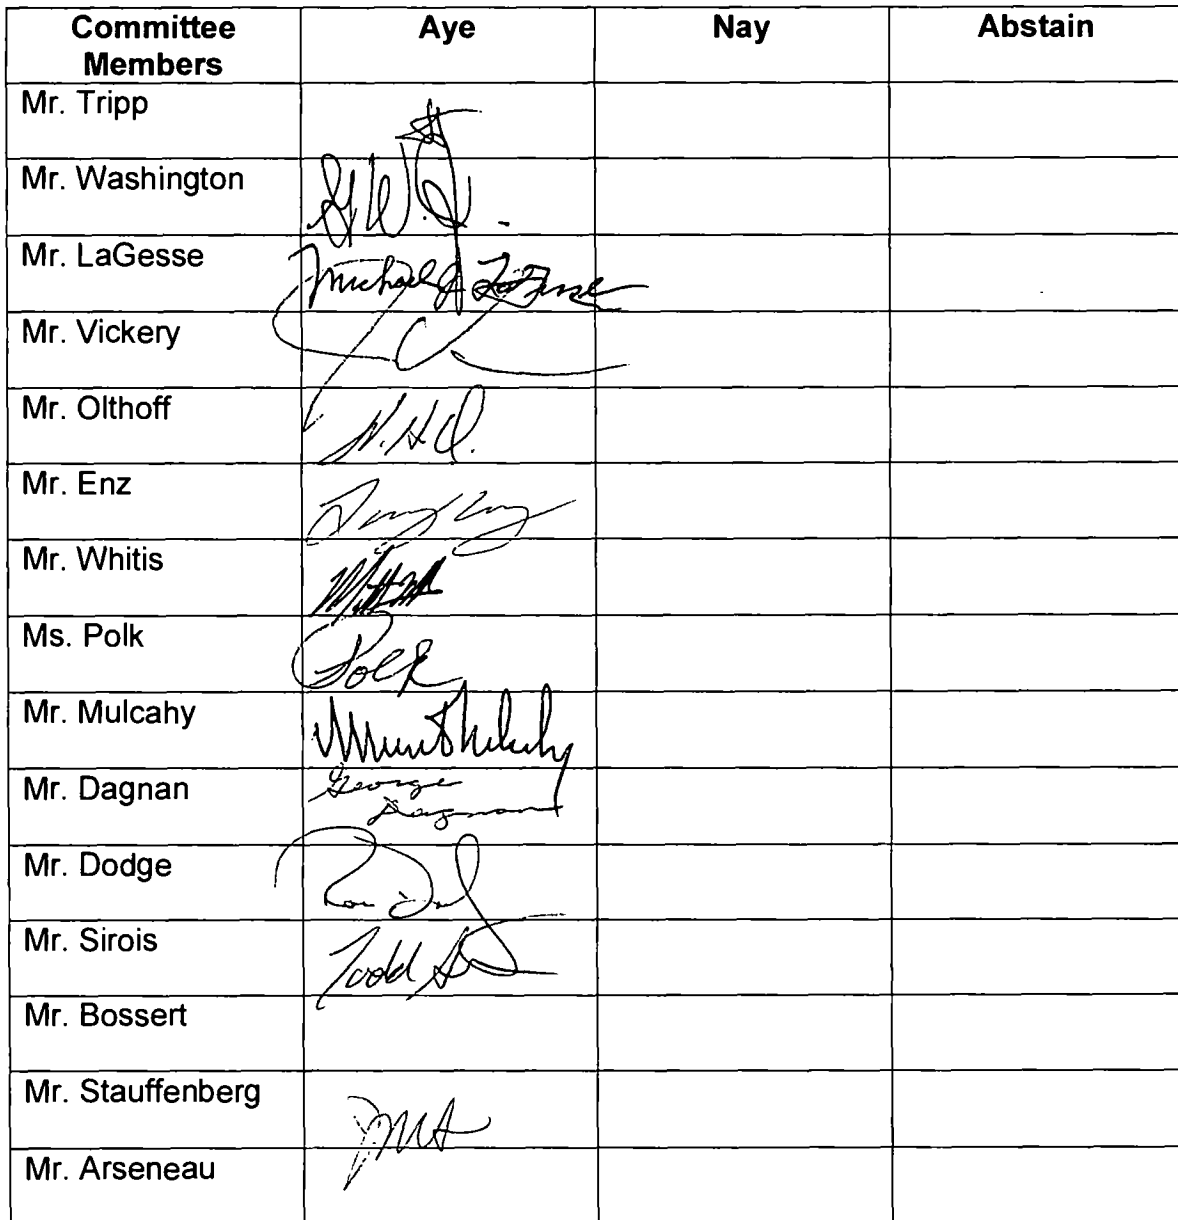 Committee Members Aye Nay Abstain
Mr. Tripp
Mr. Washington
Mr. LaGesse Michael J LaGesse
Mr. Vickery
Mr. Olthoff
Mr. Enz
Mr. Whitis
Ms. Polk Polk
Mr. Mulcahy
Mr. Dagnan George
Dagnan
Mr. Dodge
Mr. Sirois Todd
Mr. Bossert
Mr. Stauffenberg
Mr. Arseneau